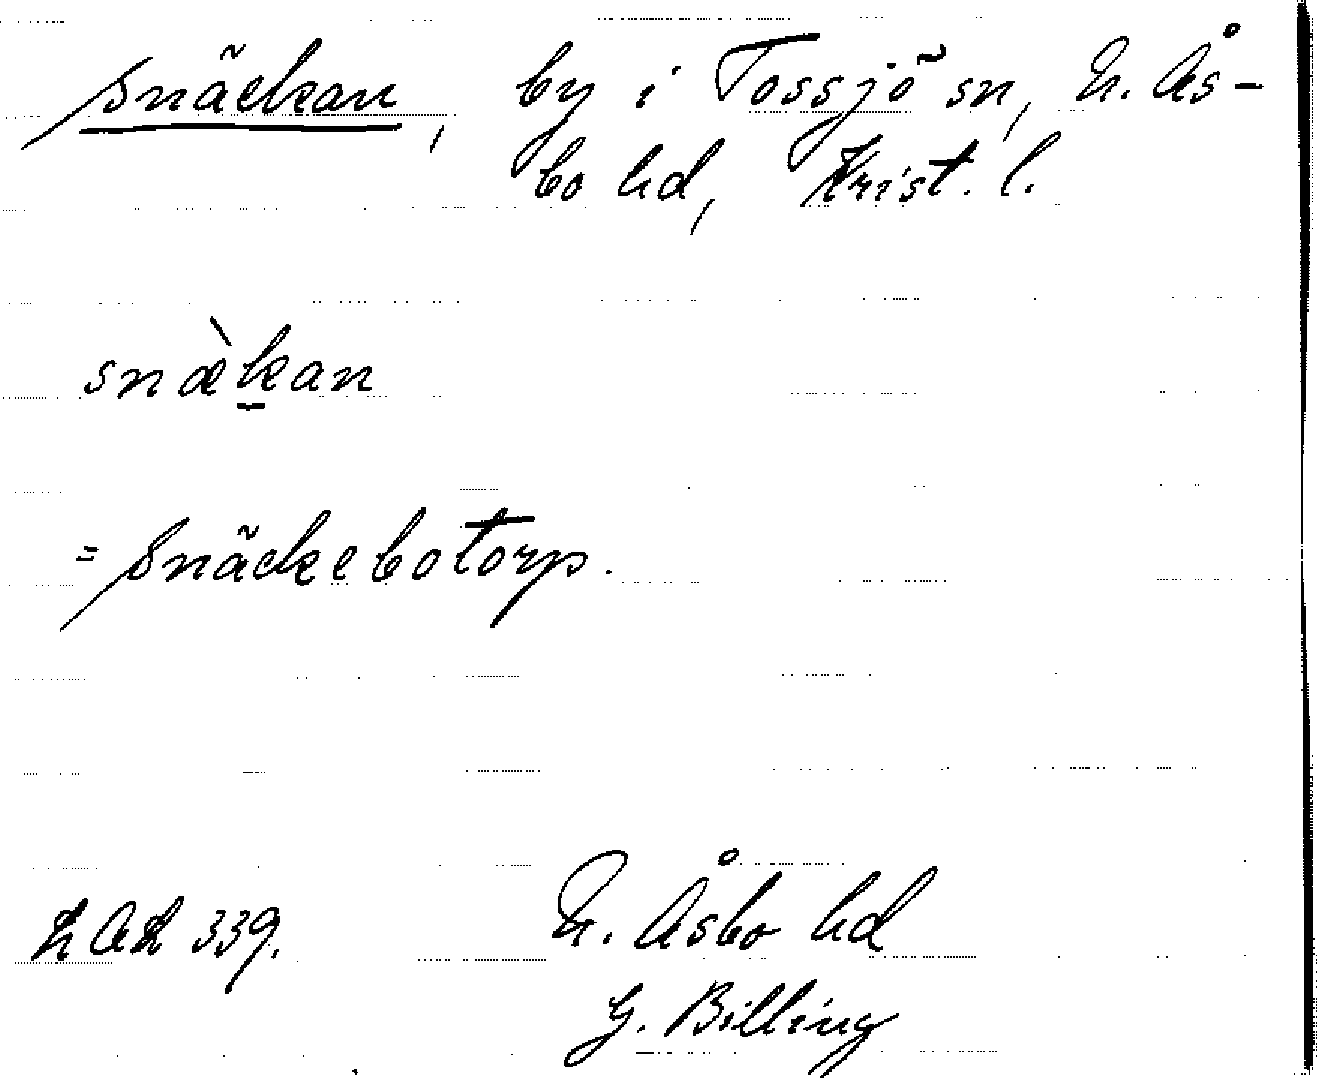 Snäckan, by i Tossjö sn, N. Ås-
bo hd, Krist. l.
snæ̀k̲an
= Snäckebotorp.
LAL 339. N. Åsbo hd
G. Billing